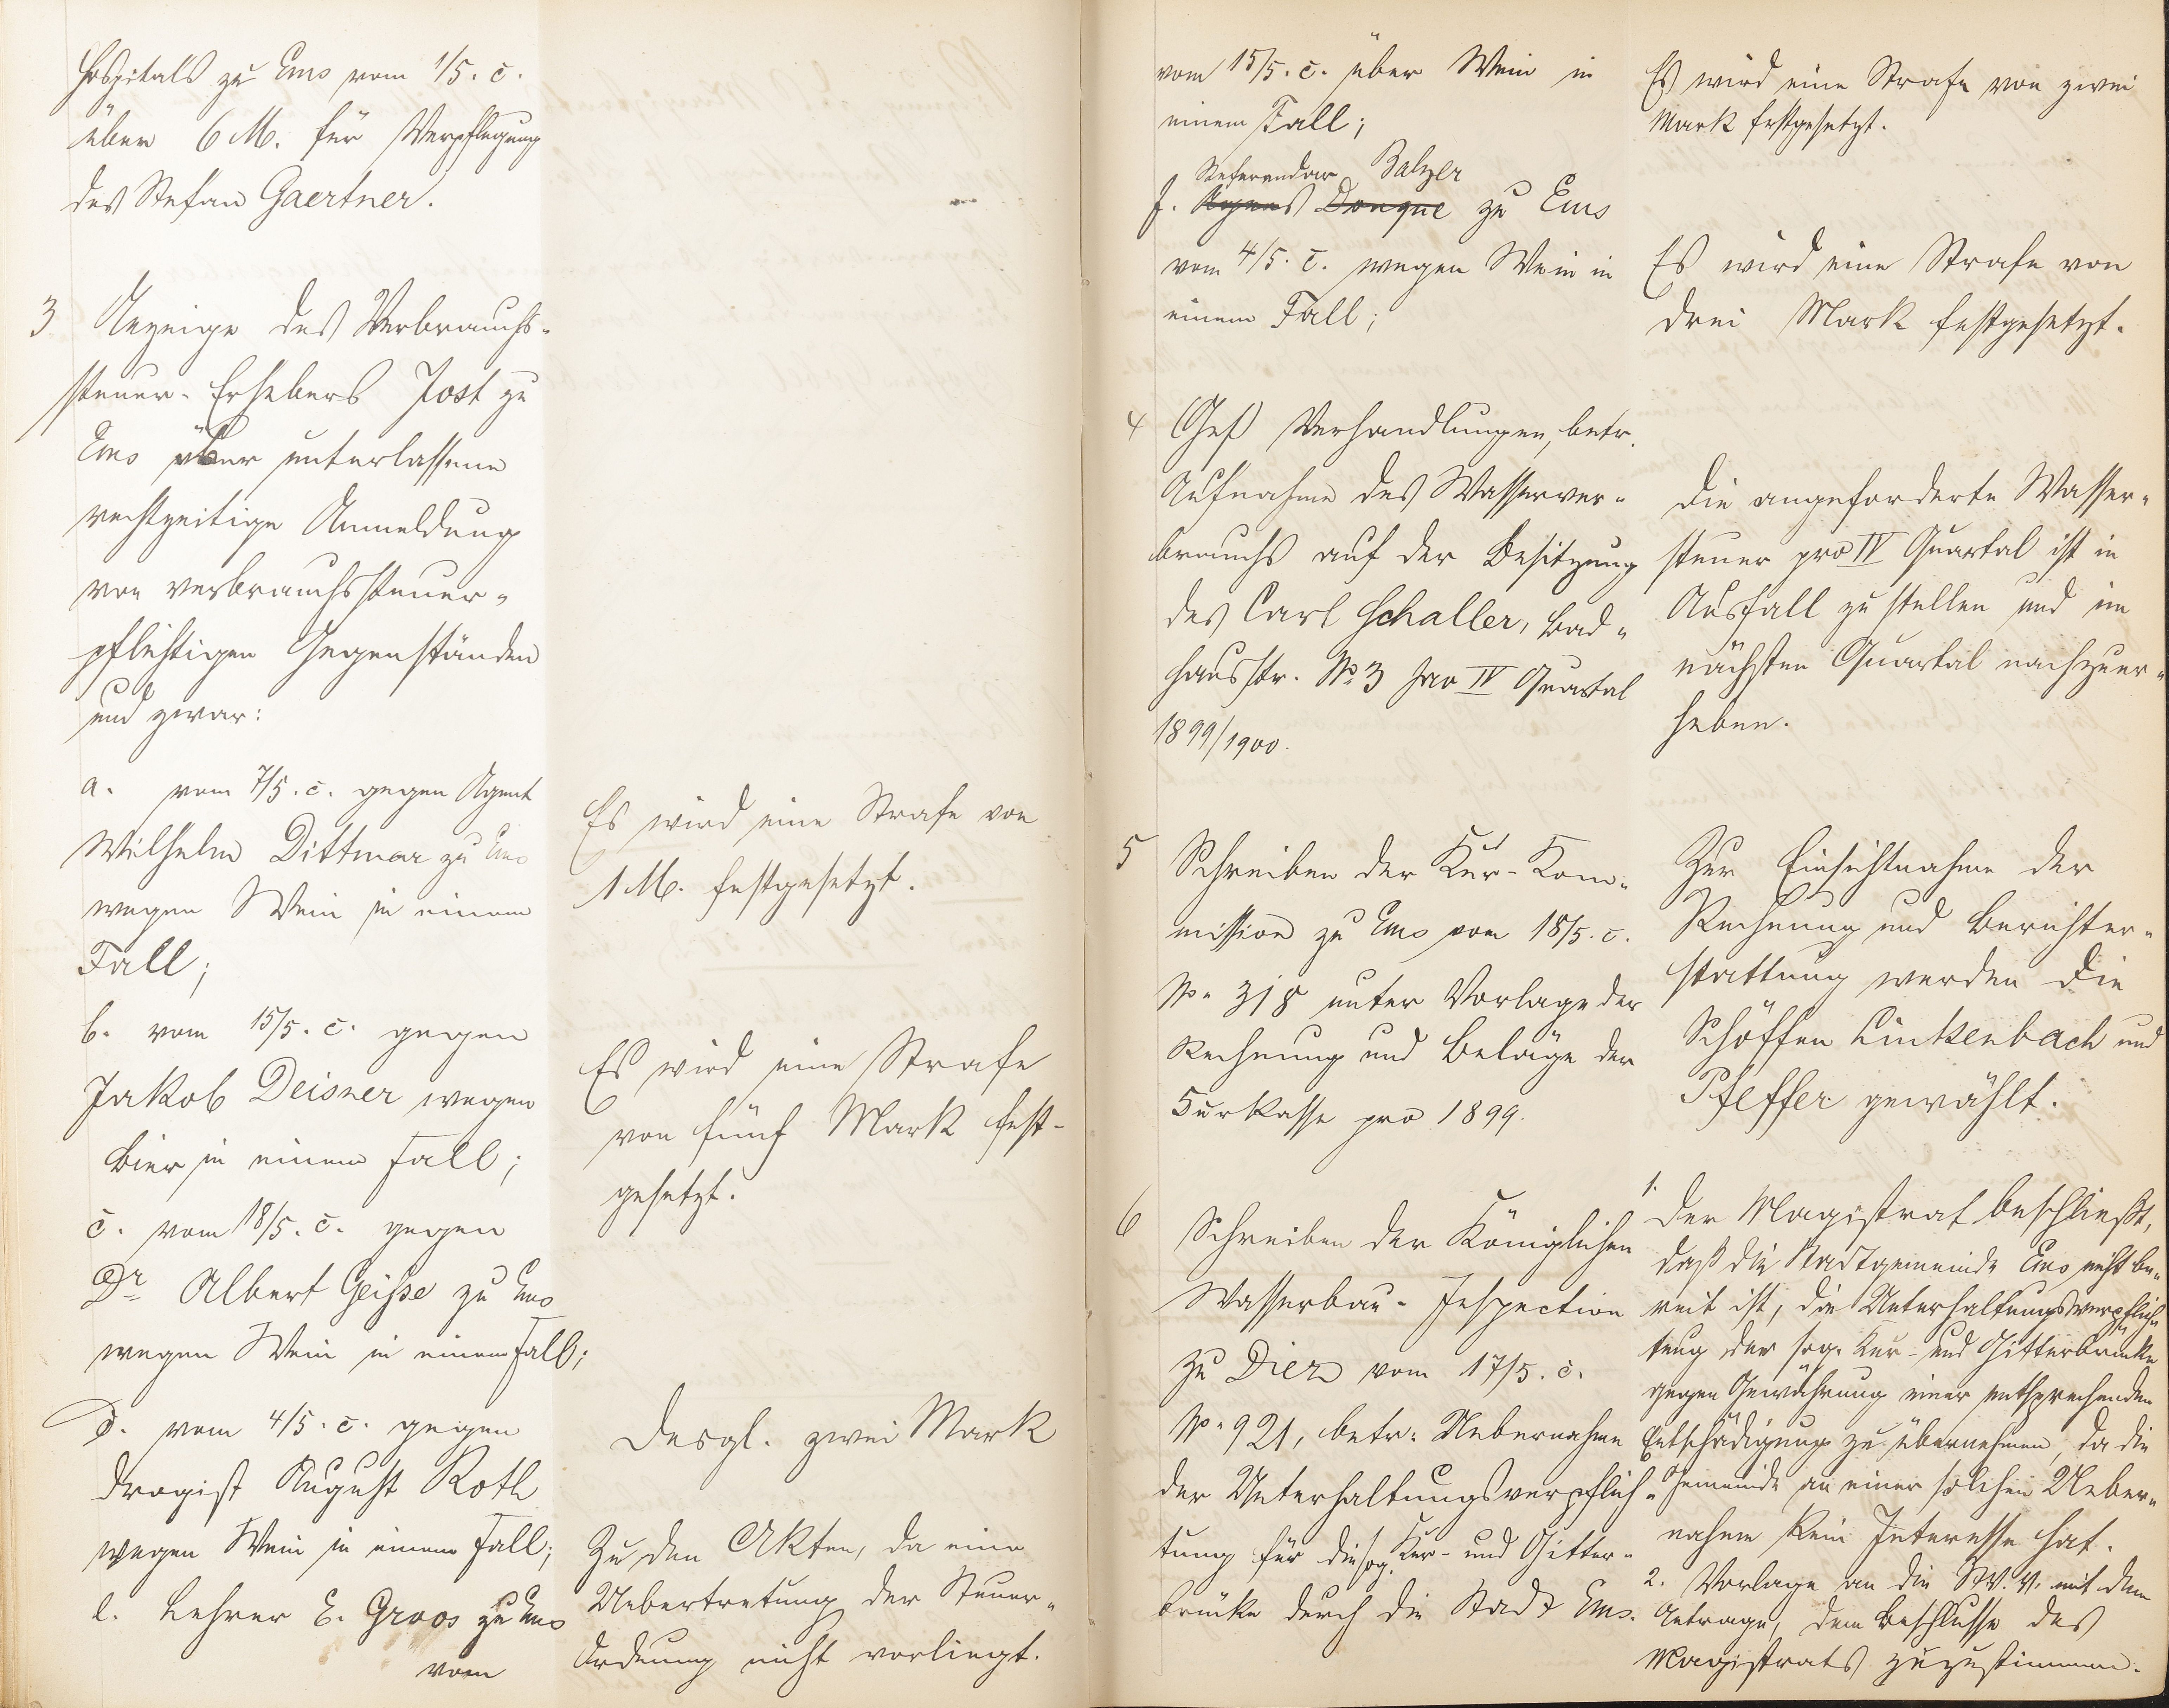 Hospitals zu Ems vom 1/5. c.
über 6 M. für Verpflegung
des Stefan Gaertner.
3 Anzeige des Verbrauchs-
steuer-Erhebers Jost zu
Ems über unterlassene
rechtzeitige Anmeldung
von verbrauchssteuer-
pflichtigen Gegenständen
und zwar:
a. vom 7/5. c. gegen Agent
Wilhelm Dittmar zu Ems
wegen Wein in einem
Fall;
b. vom 15/5. c. gegen
Jakob Deisner wegen
Bier in einem Fall;
c. vom 18/5. c. gegen
Dr Albert Geisse zu Ems
wegen Wein in einem Fall;
d. vom 4/5. c. gegen
Drogist August Roth
wegen Wein in einem Fall;
e. Lehrer E. Groos zu Ems
vom
Es wird eine Strafe von
1 M. festgesetzt.
Es wird eine Strafe
von fünf Mark fest-
gesetzt.
Desgl. zwei Mark
Zu den Akten, da eine
Uebertretung der Steuer-
Ordnung nicht vorliegt.
vom 15/5. c. über Wein in
einem Fall;
Referendar Balzer
f. Donque zu Ems
vom 4/5. c. wegen Wein in
einem Fall;
4 Ges. Verhandlungen, betr.
Aufnahme des Wasserver-
brauchs auf der Besitzung
des Carl Schaller, Bad-
hausstr. No 3 pro IV Quartal
1899/1900.
5 Schreiben der Kur-Kom-
mission zu Ems vom 18/5. c.
No. 318 unter Vorlage der
Rechnung und Beläge der
Curkasse pro 1899.
6 Schreiben der Königlichen
Wasserbau-Inspection
zu Diez vom 17/5. c.
No. 921, betr. Uebernahme
der Unterhaltungsverpflich-
tung für die sog. Kur- und Gitter-
brücke durch die Stadt Ems.
Es wird eine Strafe von zwei
Mark festgesetzt.
Es wird eine Strafe von
drei Mark festgesetzt.
Die angeforderte Wasser-
steuer pro IV Quartal ist in
Ausfall zu stellen und im
nächsten Quartal nachzuer-
heben.
Zur Einsichtnahme der
Rechnung und Berichter-
stattung werden die
Schöffen Linkenbach und
Pfeffer gewählt.
1. Der Magistrat beschließt,
daß die Stadtgemeinde Ems nicht be-
reit ist, die Unterhaltungsverpflich-
tung der sog. Kur- und Gitterbrücke
gegen Gewährung einer entsprechenden
Entschädigung zu übernehmen, da die
Gemeinde an einer solchen Ueber-
nahme kein Interesse hat.
2. Vorlage an die St. V. V. mit dem
Antrage, dem Beschlusse des
Magistrats zuzustimmen.